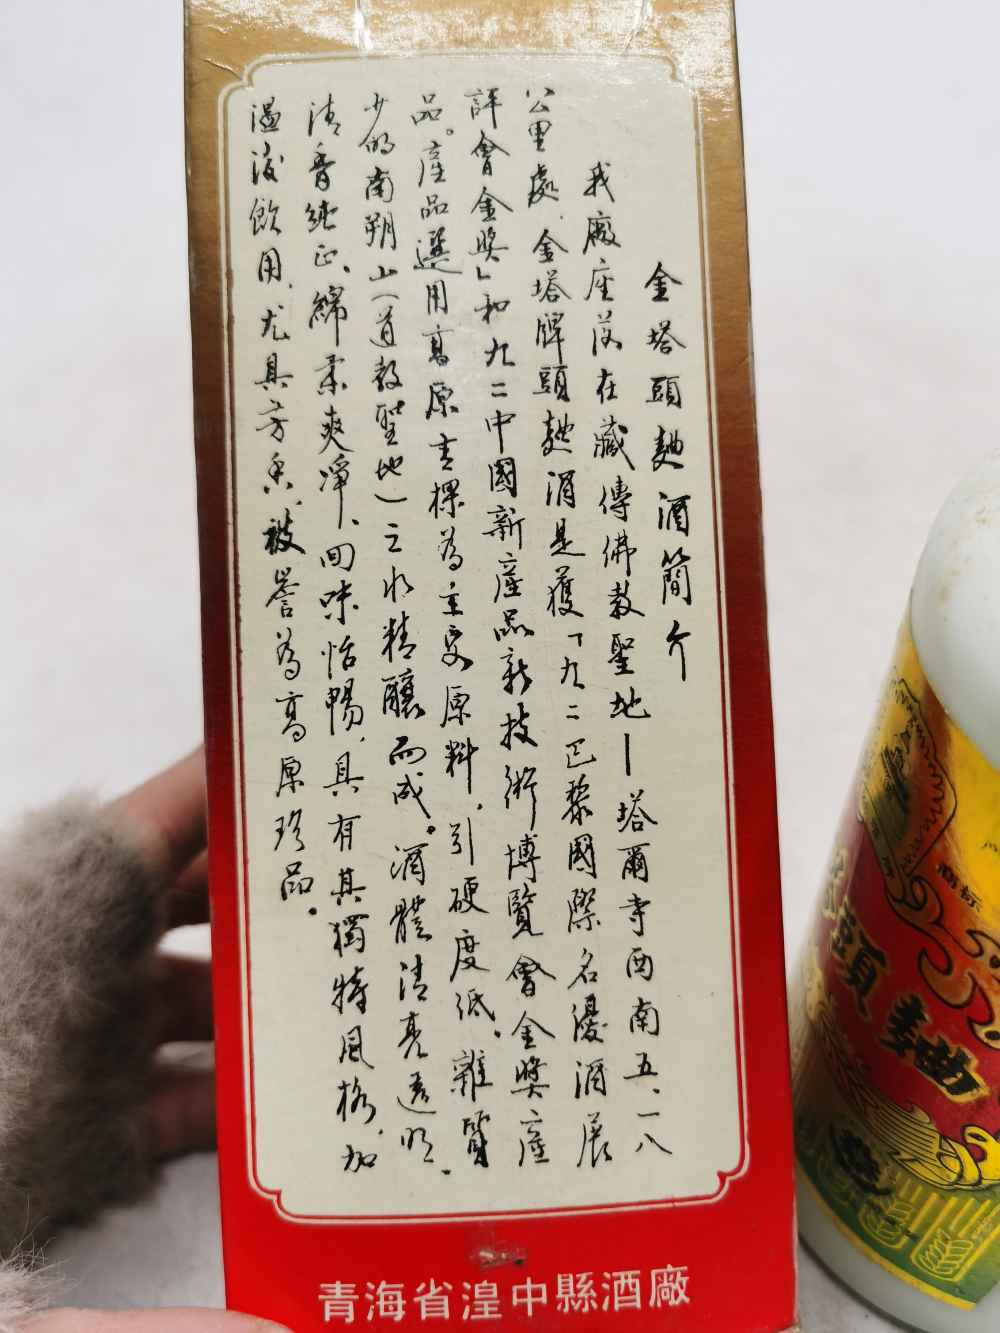 金塔頭麯酒簡介
我廠座落在藏傳佛教聖地—塔爾寺西南五.一八
公里處.金塔牌頭麯酒是獲「九二巴黎國際名優酒展
評會金奬」和九二中國新産品新技術博覽會金奬産
品。産品選用髙原青稞為主要原料,引硬度低.雜質
少的南朔山(道教聖地)之水精釀而成。酒體清亮透明.
清香純正、綿柔爽凈、回味怡暢,具有其獨特風格,加
温後飲用,尤具芳香,被譽為髙原珍品.
青海省湟中縣酒廠
商标
頭麯